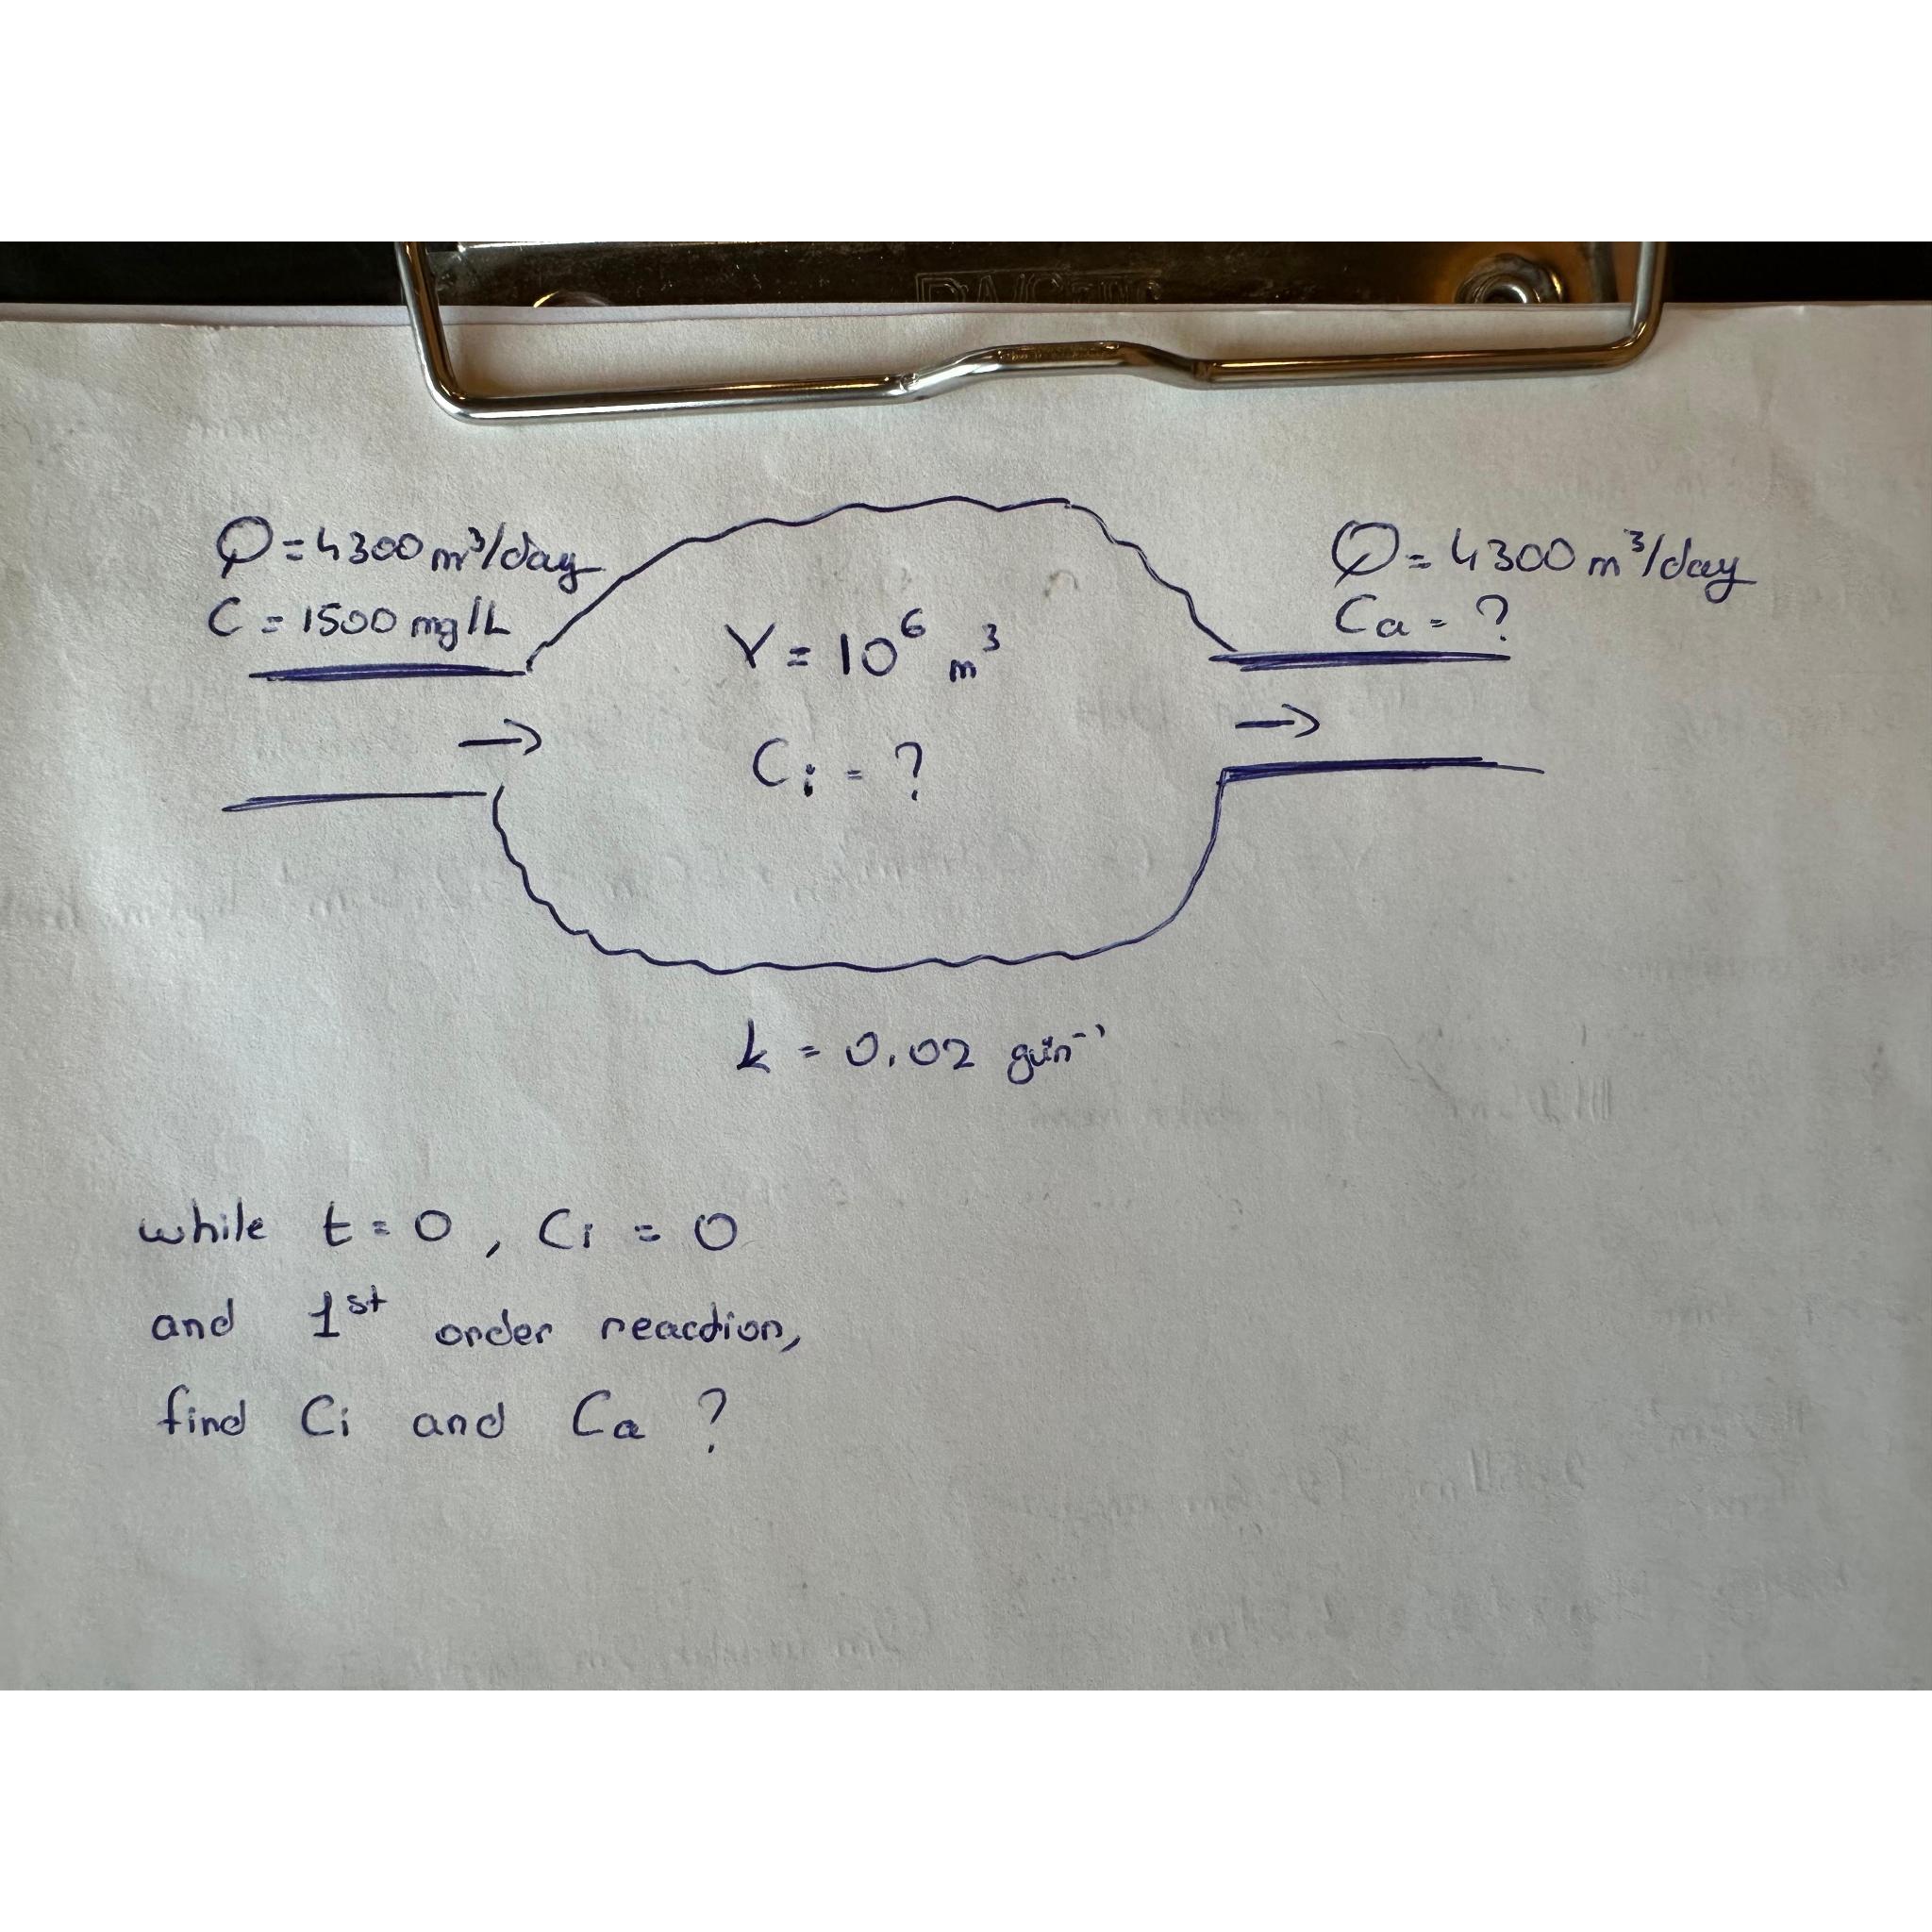 Q=4300 m³/day
C = 1500 mg/L
V = 10⁶ m³
Ci = ?
Q = 4300 m³/day
Ca = ?
k = 0.02 gün⁻¹
while t = 0, Ci = 0
and 1st order reaction,
find Ci and Ca ?